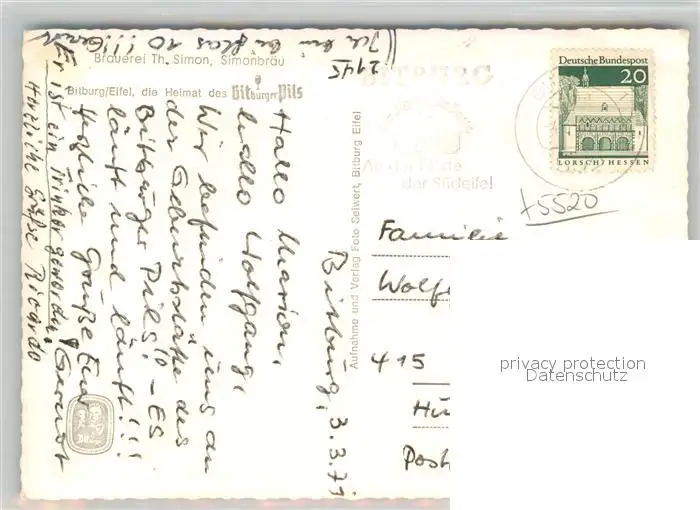 Brauerei Th. Simon, Simonbräu
Bitburg/Eifel, die Heimat des Bitburger Pils
Bitburg, 3.3.71
Hallo Marion,
hallo Wolfgang,
Wir befinden uns an
der Geburtsstätte des
Bitburger Pils!! - ES
läuft und läuft!!!
Grüße Eur
Gernot
Er ist ein Trinker geworden!
Herzliche Grüße Ricardo
Ich bin bei Glas 10!!! Gernot
2145
Aufnahme und Verlag Foto Seiwert, Bitburg Eifel
BITBURG
der Südeifel
Deutsche Bundespost
20
LORSCH/HESSEN
+5520
Familie
Wolf
415
Post
privacy protection
Datenschutz